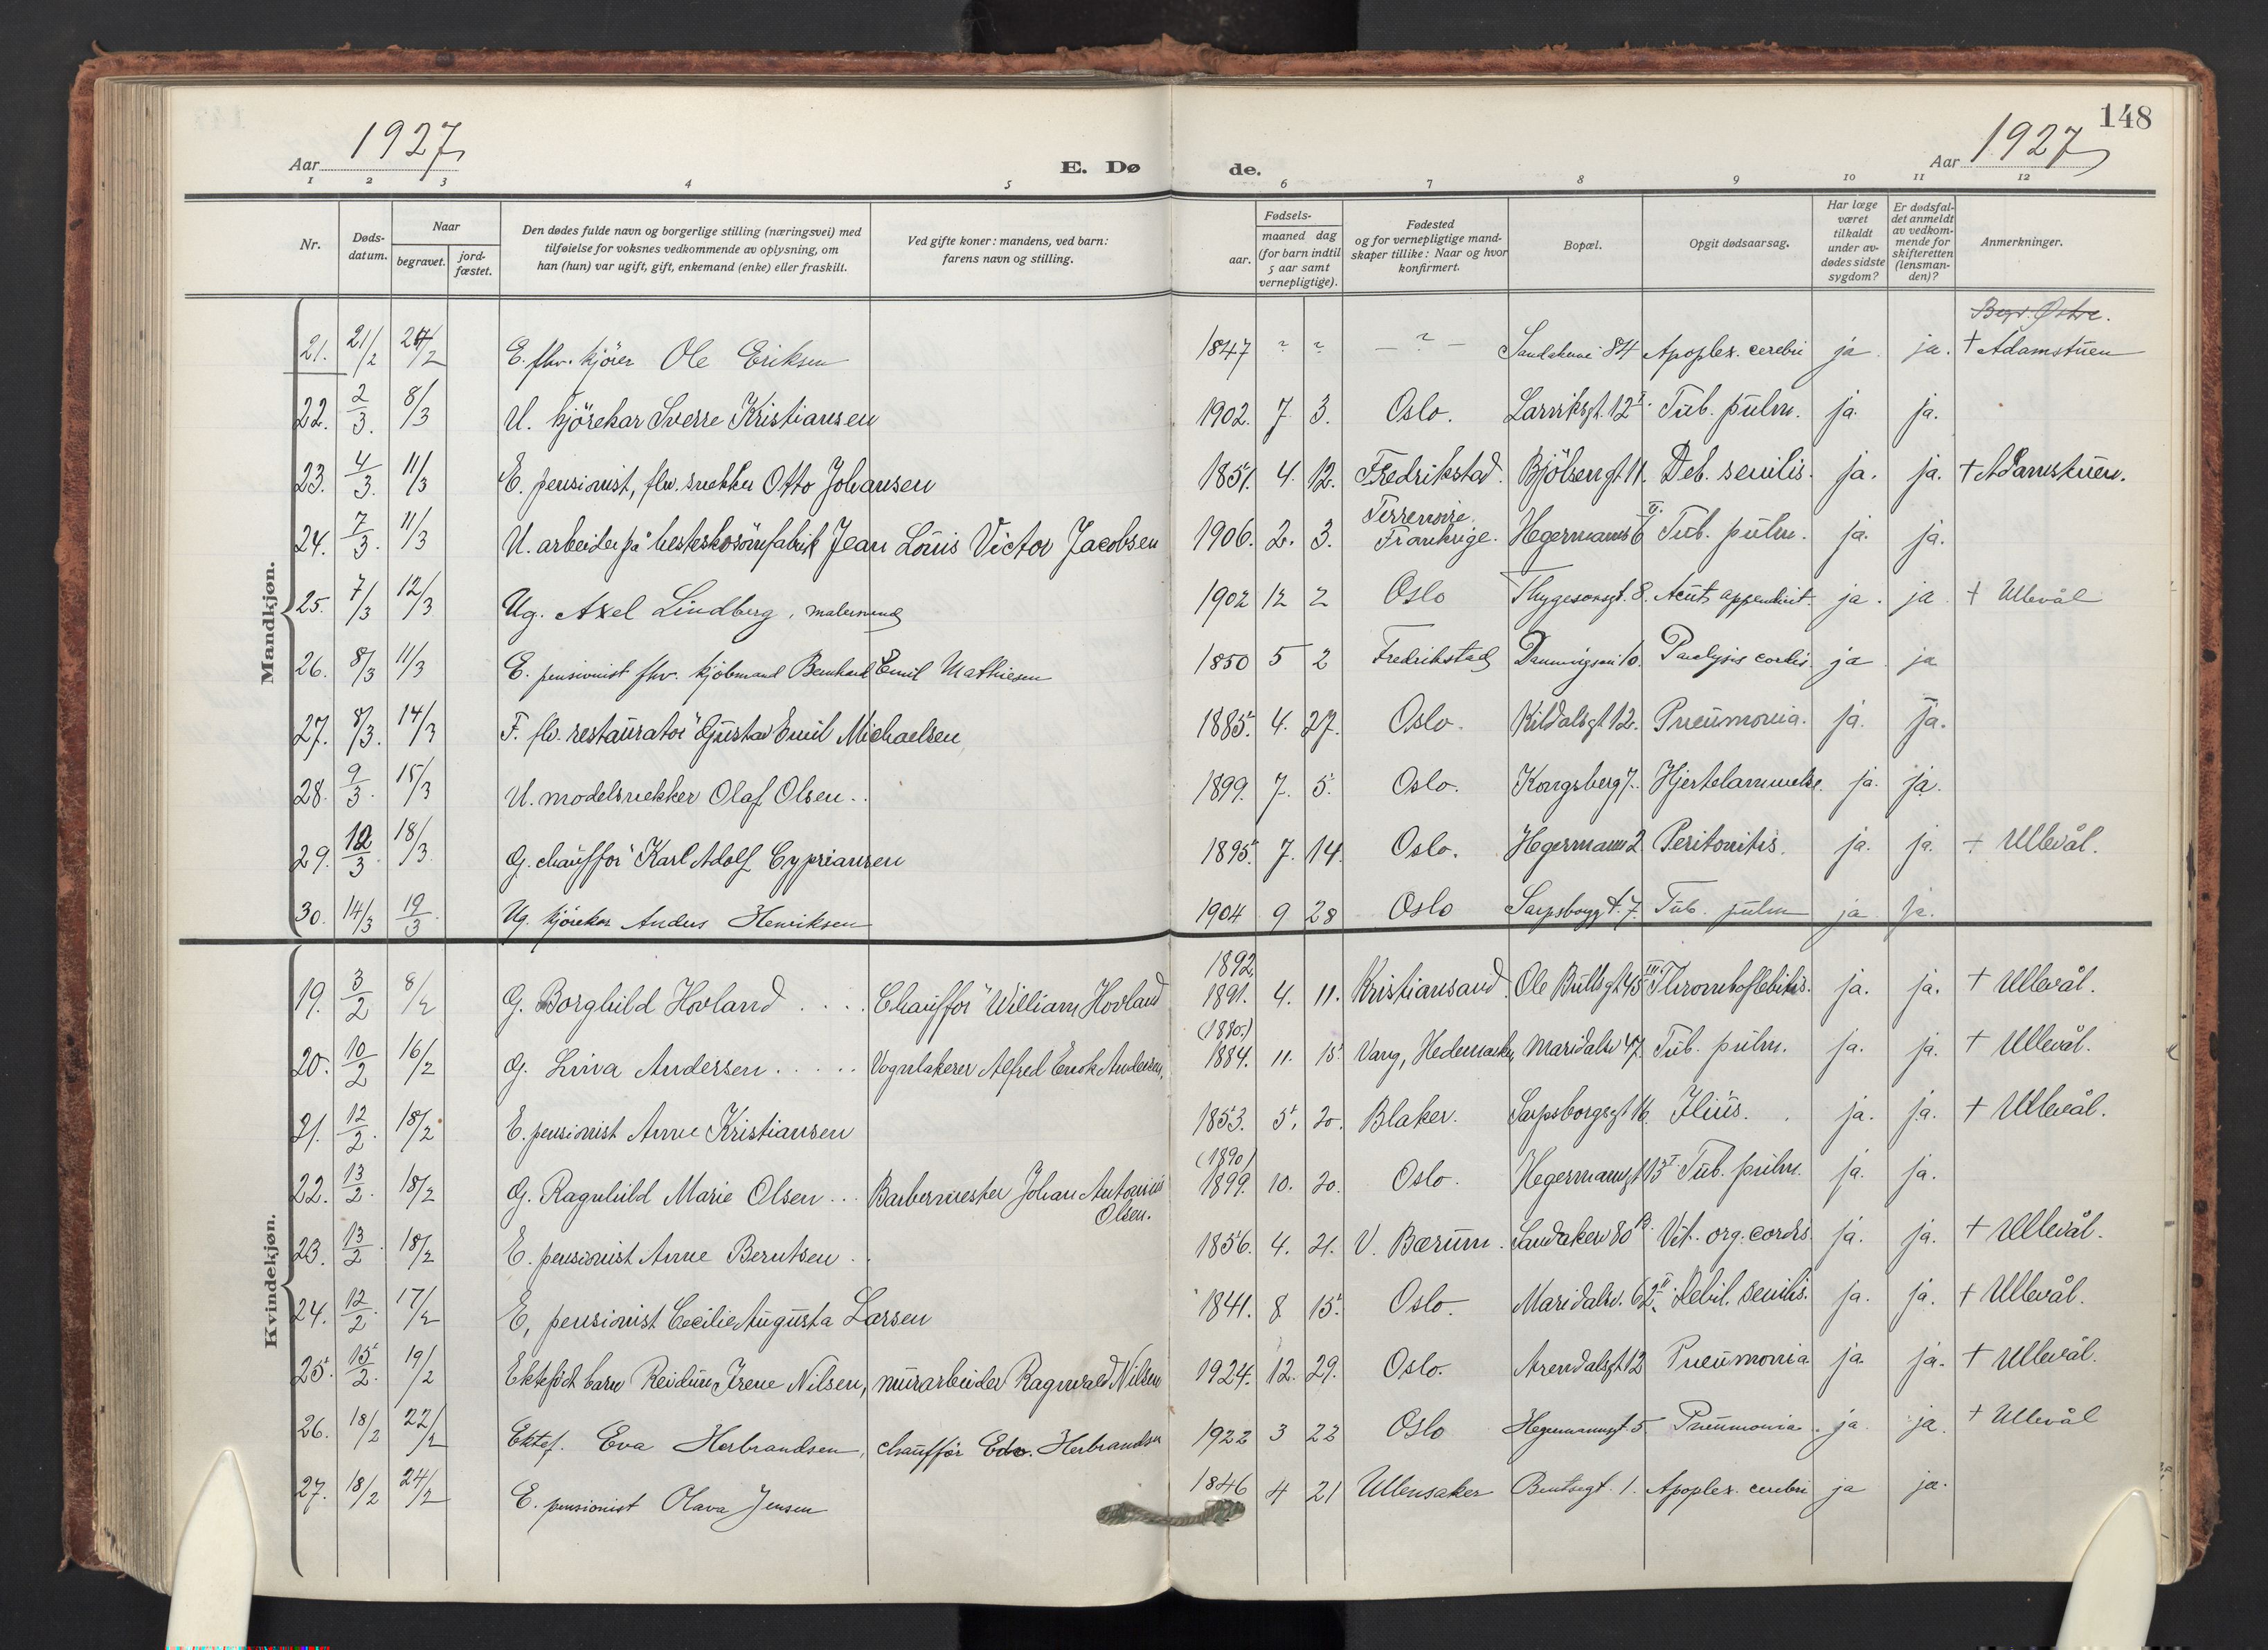 148
Aar 1927
E. Dø
de.
Aar 1927
1 2 3 4 5 6 7 8 9 10 11 12
Nr.
Døds-
datum.
Naar
begravet.
jord-
fæstet.
Den dødes fulde navn og borgerlige stilling (næringsvei) med
tilføielse for voksnes vedkommende av oplysning, om
han (hun) var ugift, gift, enkemand (enke) eller fraskilt.
Ved gifte koner: mandens, ved barn:
farens navn og stilling.
Fødsels-
aar.
maaned dag
(for barn indtil
5 aar samt
vernepligtige).
Fødested
og for vernepligtige mand-
skaper tillike: Naar og hvor
konfirmert.
Bopæl.
Opgit dødsaarsag.
Har læge
været
tilkaldt
under av-
dødes sidste
sygdom?
Er dødsfal-
det anmeldt
av vedkom-
mende for
skifteretten
(lensman-
den)?
Anmerkninger.
Mandkjøn.
Begr. Østre.
21. 21/2 24/2 E. fhv. kjörer Ole Eriksen 1847 ? ? — ? — 84 Apoplex. cerebri ja. ja. † Adamstuen
22. 2/3. 8/3 U. kjörekar Sverre Kristiansen 1902. 7 3. Oslo. Larviksgt. 12 I. Tub. pulm. ja. ja.
23. 4/3. 11/3 E. pensionist, fhv. snekker Otto Johansen 1851. 4. 12. Fredrikstad. Bjölsengt 11. Deb. senilis. ja. ja. † Adamstuen.
24. 7/3. 11/3 U. arbeider på hesteskosömfabrik Jean Louis Victor Jacobsen 1906. 2. 3. Frankrige. Hegermanns 6 II. Tub. pulm. ja. ja.
25. 7/3 12/3 Ug. Axel Lindberg, malersvend 1902 12 2 Oslo Thygesonsgt. 8. Acut appendicit. ja. ja. † Ullevål
26. 8/3 11/3 E. pensionist fhv. kjöbmand Bernhard Emil Mathiesen 1850 5 2 Fredrikstad 10. Paralysis cordis. ja. ja
27. 8/3. 14/3 F. fhv. restauratör Gustav Emil Michaelsen 1885. 4. 27. Oslo. Kildalsgt 12. Pneumonia. ja. ja.
28. 9/3. 15/3 U. modelsnekker Olaf Olsen.. 1899. 7. 5. Oslo. Kongsberg 7. Hjertelammelse. ja. ja.
29. 12/3 18/3. G. chaufför Karl Adolf Cypriansen 1895. 7. 14. Oslo. Hegermann 2 Peritonitis. ja. ja. † Ullevål.
30. 14/3 19/3. Ug. kjörekar Anders Henriksen 1904 9 28 Oslo Sarpsborggt. 7. Tub. pulm ja ja.
Kvindekjøn.
1892
19. 3/2 8/2 G. Borghild Hovland .... Chaufför William Hovland 1891. 4. 11. Kristiansand. Ole Bullsgt 45 III. Thromboflebitis. ja. ja. † Ullevål.
(1880.)
20. 10/2 16/2 G. Lina Andersen ..... Vognlakerer Alfred Enok Andersen, 1884. 11. 15. Vang, Hedemarken Maridalsv 47. Tub. pulm. ja. ja. † Ullevål.
21. 12/2. 18/2 E. pensionist Anne Kristiansen 1853. 5. 20. Blaker. Sarpsborgsgt 16. Ilius. ja. ja. † Ullevål.
(1890)
22. 13/2. 18/2 G. Ragnhild Marie Olsen ... Barbermester Johan Antonius
Olsen. 1899. 10. 20. Oslo. Hegermannsgt 13 I. Tub. pulm. ja. ja.
23. 13/2. 18/2 E. pensionist Anne Berntsen .. 1856. 4. 21. V. Bærum. Sandakerv 80 B. Vit. org. cordis. ja. ja. † Ullevål.
24. 12/2. 17/2 E, pensionist Cecilie Augusta Larsen 1841. 8. 15. Oslo. Maridalsv. 62 II. Debil. senilis. ja. ja. † Ullevål.
25. 15/2. 19/2 Ektefödt barn Reidun Irene Nilsen, murarbeider Ragnvald Nilsen 1924. 12. 29. Oslo. Arendalsgt 12 Pneumonia ja. ja. † Ullevål.
26. 18/2 22/2 Ektef. Eva Herbrandsen, chaufför Edv. Herbrandsen 1922 3 22 Oslo Hegermannsgt. 5 Pneumonia. ja. ja. † Ullevål
27. 18/2 24/2 E. pensionist Olava Jensen 1846 4 21 Ullensaker Bentsegt. 1. Apoplex. cerebri ja ja.